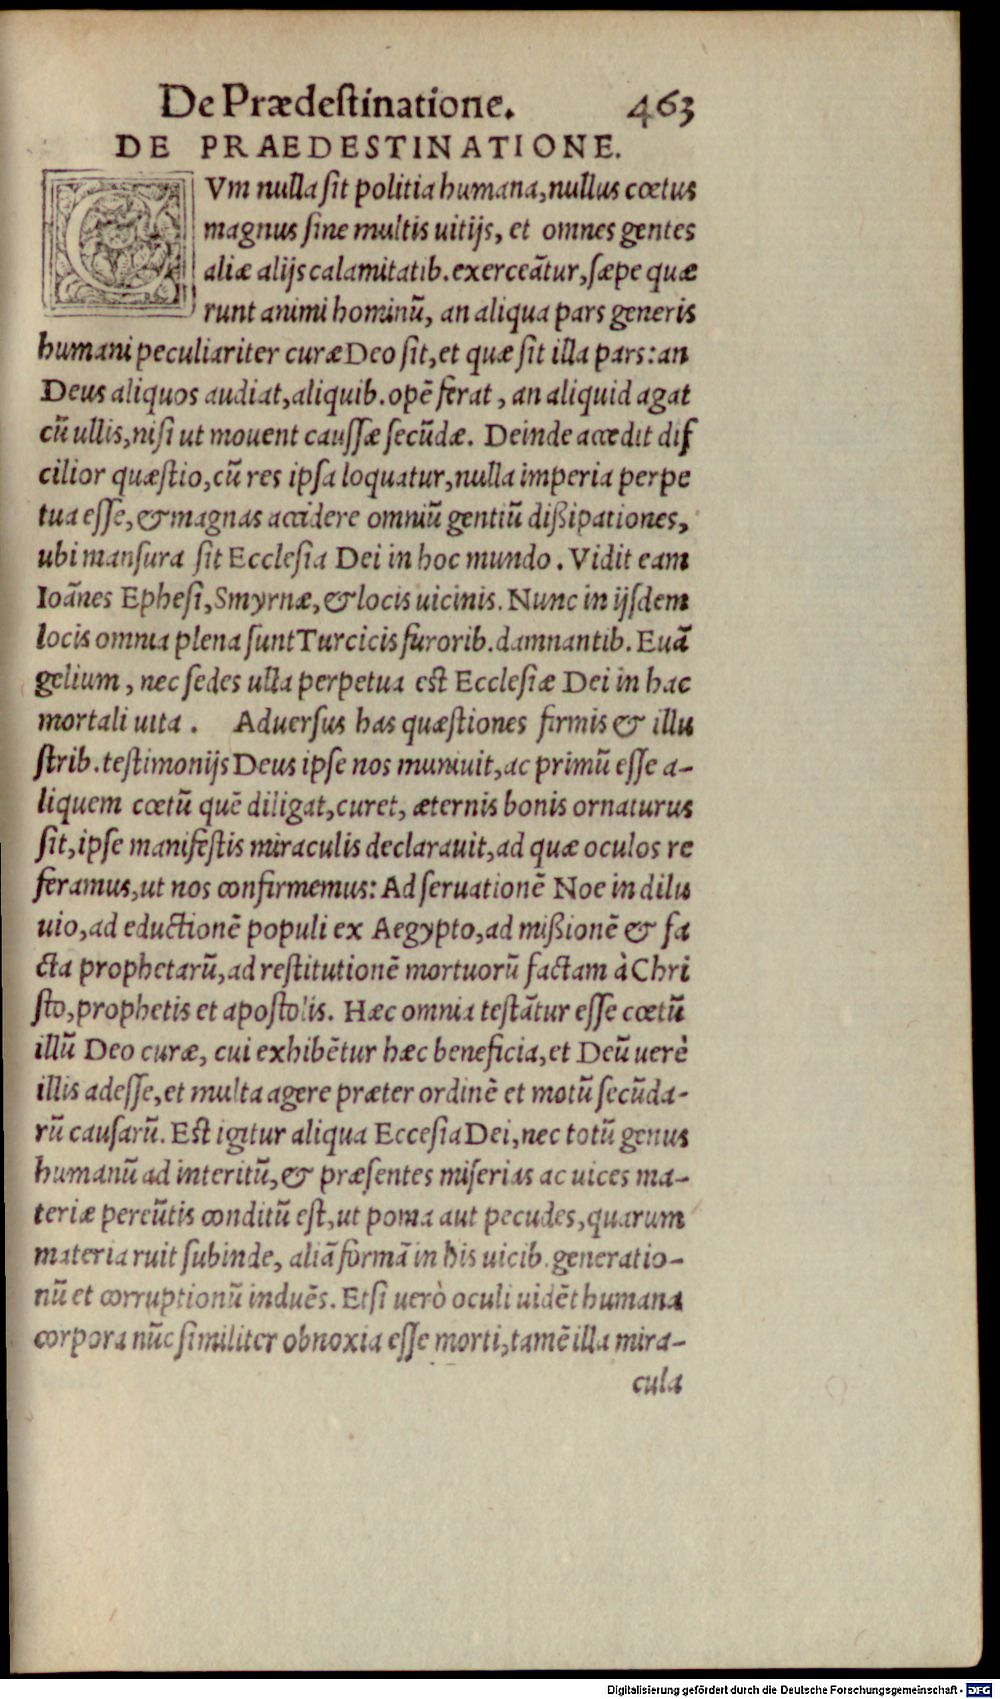 De Prædeſtinatione. 463
DE PRAEDESTINATIONE.
CVm nulla ſit politia humana, nullus cœtus
magnus ſine multis uitijs, et omnes gentes
aliæ alijs calamitatib. exerceãtur, ſæpe quæ
runt animi hominũ, an aliqua pars generis
humani peculiariter curæ Deo ſit, et quæ ſit illa pars: an
Deus aliquos audiat, aliquib. opẽ ferat, an aliquid agat
cũ ullis, niſi ut mouent cauſſæ ſecũdæ. Deinde accedit dif
cilior quæſtio, cũ res ipſa loquatur, nulla imperia perpe
tua eſſe, & magnas accidere omniũ gentiũ dißipationes,
ubi manſura ſit Eccleſia Dei in hoc mundo. Vidit eam
Ioãnes Epheſi, Smyrnæ, & locis uicinis. Nunc in ijſdem
locis omnia plena ſunt Turcicis furorib. damnantib. Euã
gelium, nec ſedes ulla perpetua eſt Eccleſiæ Dei in hac
mortali uita. Aduerſus has quæſtiones firmis & illu
ſtrib. teſtimonijs Deus ipſe nos muniuit, ac primũ eſſe a-
liquem cœtũ quẽ diligat, curet, æternis bonis ornaturus
ſit, ipſe manifeſtis miraculis declarauit, ad quæ oculos re
feramus, ut nos confirmemus: Ad ſeruationẽ Noe in dilu
uio, ad eductionẽ populi ex Aegypto, ad mißionẽ & fa
cta prophetarũ, ad reſtitutionẽ mortuorũ factam à Chri
ſto, prophetis et apoſtolis. Hæc omnia teſtãtur eſſe cœtũ
illũ Deo curæ, cui exhibẽtur hæc beneficia, et Deũ uerè
illis adeſſe, et multa agere præter ordinẽ et motũ ſecũda-
rũ cauſarũ. Eſt igitur aliqua Ecceſia Dei, nec totũ genus
humanũ ad interitũ, & præſentes miſerias ac uices ma-
teriæ pereũtis conditũ eſt, ut poma aut pecudes, quarum
materia ruit ſubinde, aliã formã in his uicib. generatio-
nũ et corruptionũ induẽs. Etſi uerò oculi uidẽt humana
corpora nũc ſimiliter obnoxia eſſe morti, tamẽ illa mira-
cula
Digitalisierung gefördert durch die Deutsche Forschungsgemeinschaft - DFG